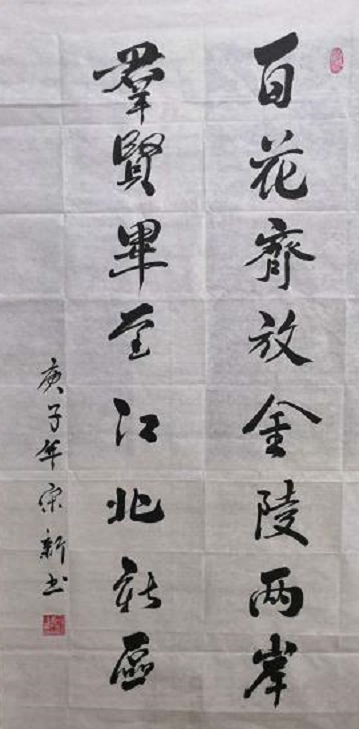 百花齊放金陵两岸
羣賢畢至江北新區
庚子年宋新书